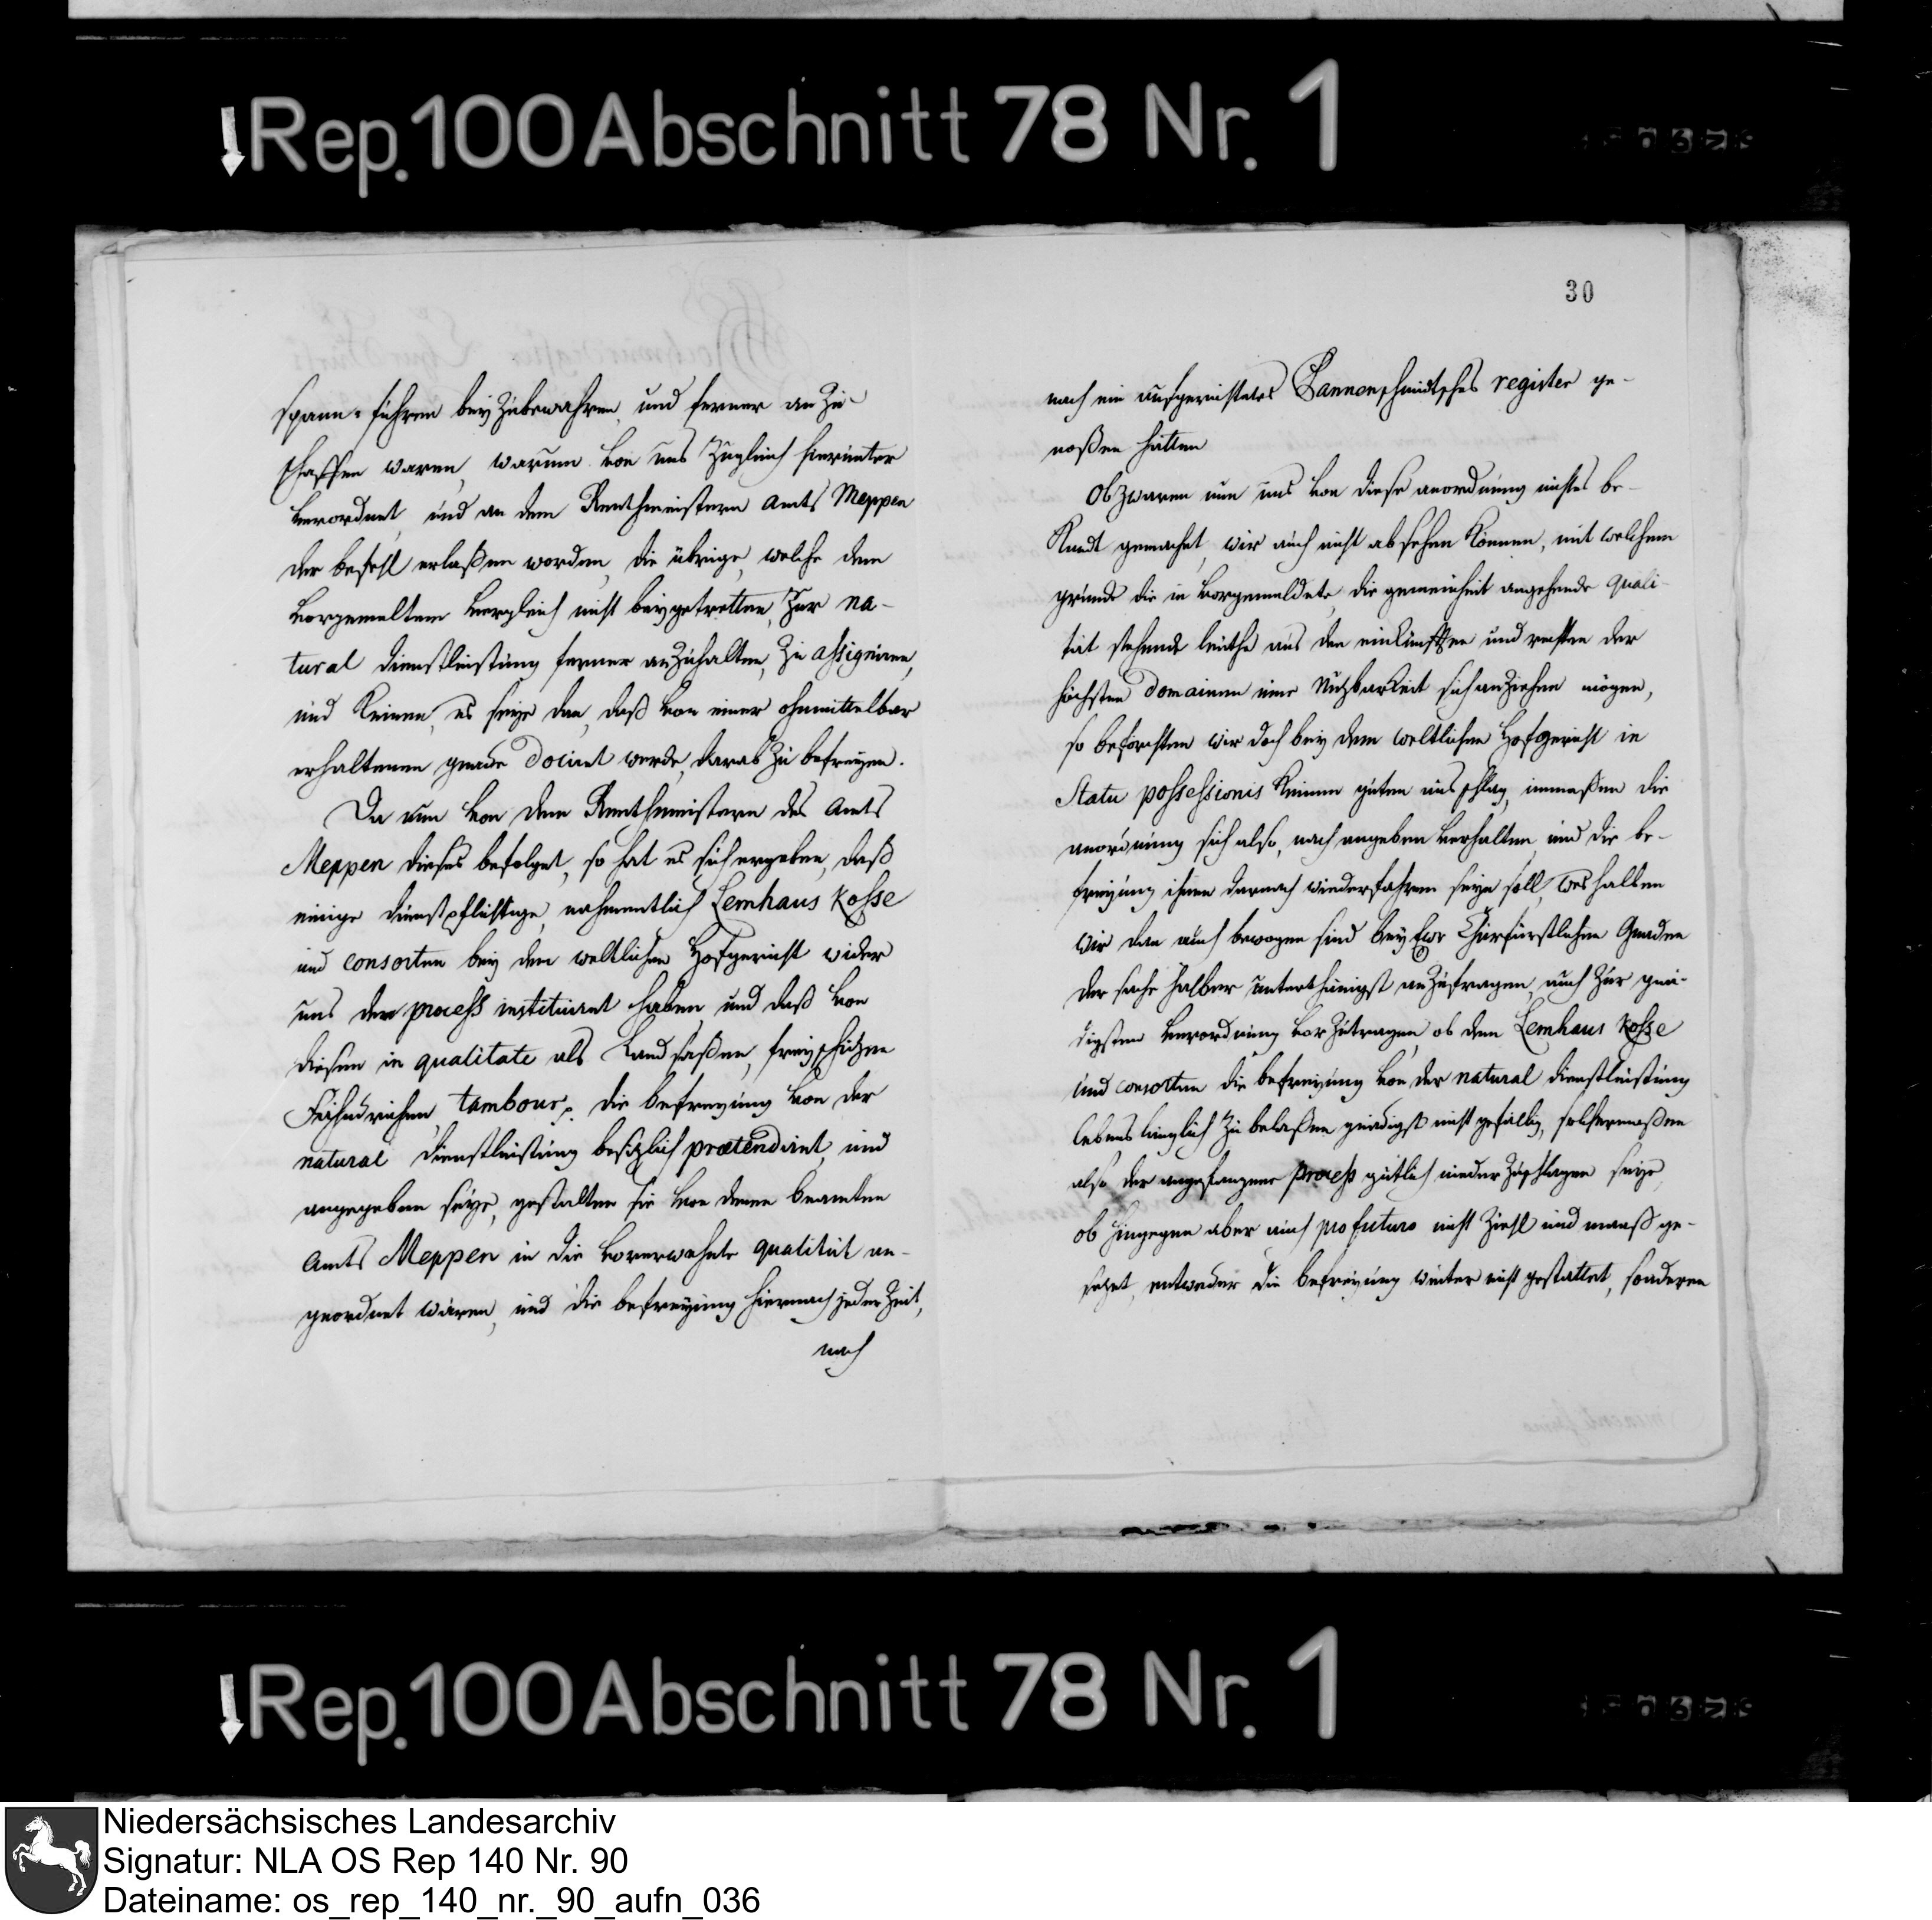 Rep. 100 Abschnitt 78 Nr. 1
30
spann-führen bey Zubewahren, und ferner an Zu
schaffen waren, warum von uns Zugleich hierunter
verordnet, und an dem Renthmeistern Amts Meppen
der befehl erlaßen worden, die übrige, welche dem
vorgemeltem vergleich nicht beygetretten, Zur na-
tural dienstleistung ferner anzuhalten, Zu assigniren,
und Keinen, es seye dan, daß von einer ohnmittelbar
erhaltenen gnade Dociret werde, darab Zu befreyen.
Da nun von dem Renthmeistern des Amts
Meppen dieses befolget, so hat es sich ergeben, daß
einige dienstpflichtige, nahmentlich Lemhaus Kosse
und consorten bey dem weltlichen Hofgericht wider
uns den process instituiret haben, und daß von
diesen in qualitate als Landsaßen, freyschützen
Fähndrichen, tambour, die befreyung von der
natural dienstleistung besitzlich prætendiret, und
angegeben seye, gestalten sie von denen beamten
Amts Meppen in die vorerwahnte qualität an-
geordnet wären, und die befreyung hiernach jederzeit,
nach
nach ein aufgerichtetes Dannenschmidtsches register ge-
noßen hätten
Obzwaren nun uns von diese anordnung nichtes be-
Kandt gemachet, wir auch nicht absehen Können, mit welchem
grunde die in vorgemeldete, die gemeinheit angehende quali-
tät stehende leuthe aus den einkünfften und rechten der
höchsten Domainen eine Nutzbarkeit sich anziehen mögen,
so beförchten wir doch bey dem weltlichen Hofgericht in
Statu possessionis Keinen guten ausschlag, inmaßen die
anordnung sich also, nach angeben verhalten und die be-
freyung ihnen darnach wiederfahren seyn soll, weshalben
wir dan auch bewogen sind bey Ewr Churfürstlichen Gnaden
der sache halber unterthänigst anzufragen, auch Zur gnä-
digsten verordnung vorzutragen, ob dem Lemhaus Kosse
und consorten die befreyung von der natural dienstleistung
lebens länglich Zu belaßen gnädigst nicht gefällig, solchermaßen
also der angefangene process gütlich niederzuschlagen seye,
ob hingegen aber auch pro futuro nicht Ziehl und maaß ge-
setzet, entweder die befreyung weiter nicht gestattet, sonderen
Rep. 100 Abschnitt 78 Nr. 1
Niedersächsisches Landesarchiv
Signatur: NLA OS Rep 140 Nr. 90
Dateiname: os_rep_140_nr._90_aufn_036